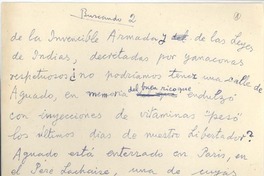 Buscando 2
de la Invencible Armada y de las Leyes
de Indias, decretadas por yanaconas
respetuosos ¿ no podríamos tener una calle de
Aguado, en memoria del buen rico que endulzó
con inyecciones de vitaminas "peso"
los últimos días de nuestro Libertador?
Aguado está enterrado en París, en
el Père Lachaise, una de cuyas